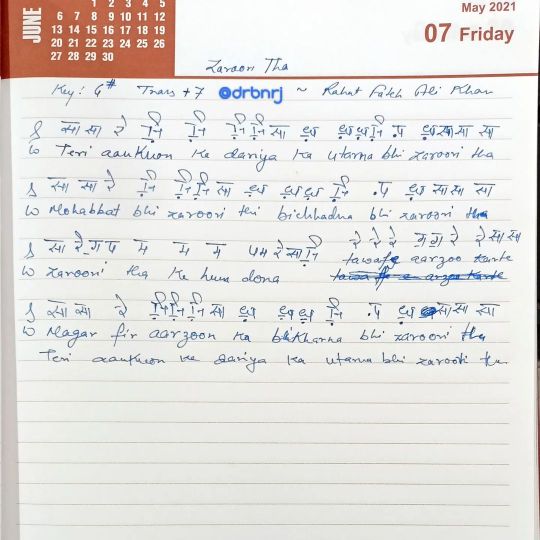 JUNE
1 2 3 4 5
6 7 8 9 10 11 12
13 14 15 16 17 18 19
20 21 22 23 24 25 26
27 28 29 30
May 2021
07 Friday
Zaroori Tha
Key: G# Trans +7 @drbnrj ~ Rahat Fateh Ali Khan
S सा सा रे नि़ नि़ नि़ नि़ सा ध़ ध़ ध़ नि़ प़ ध़ सा सा सा
W Teri aankhon ke dariya ka utarna bhi zaroori tha
S सा सा रे नि़ नि़ नि़ सा ध़ ध़ ध़ नि़ .प ध़ सा सा सा
W Mohabbat bhi zaroori thi bichhadna bhi zaroori tha
S सा रे ग॒ प म म म प म रे सा नि़ रे रे रे ग॒ ग॒ रे रे सा सा
W zaroori tha ke hum dono tawafe aarzoo karte
S सा सा रे नि़ नि़ नि़ सा ध़ ध़ ध़ नि़ .प ध़ सा सा सा
W Magar fir aarzoon ka bikharna bhi zaroori tha
Teri aankhon ke dariya ka utarna bhi zaroori tha